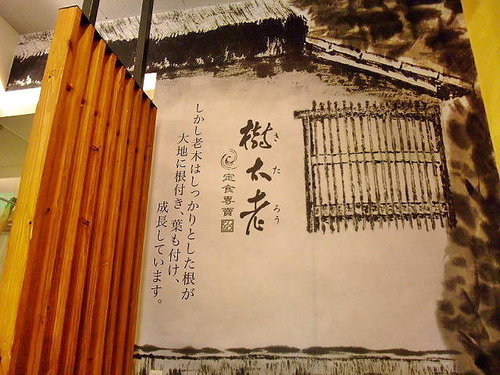 樹太老
きたろう
定食専賣
しかし老木はしっかりとした根が
大地に根付き、葉も付け、
成長しています。